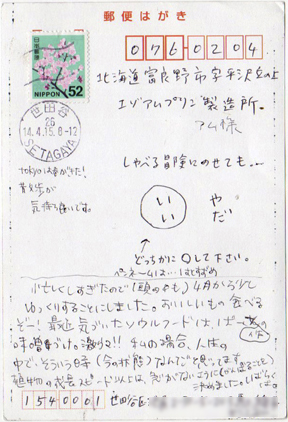 郵便はがき
日本郵便
NIPPON 52
世田谷
26
14.4.15. 8-12
SETAGAYA
076-0204
北海道富良野市字平沢丘の上
エゾアムプリン製造所。
アム様
tokyoは春がきた!
散歩が
気持ち良いです。
しゃべる冒険にのせても…
いい
やだ
↑
どっちかに○して下さい。
ペンネームは…はとすずめ
忙しくしすぎたので(頭のやも)4月から少し
ゆっくりすることにしました。おいしいもの食べる
ぞ!最近気づいたソウルフードは、ばーあの
味噌づけの激ウマ!!私の場合、人生の
中で、そういう時(今の状態)なんだと思ってます。
植物の成長スピード以上は、急がないように(がんばること)
決めました。
1540001
世田谷区